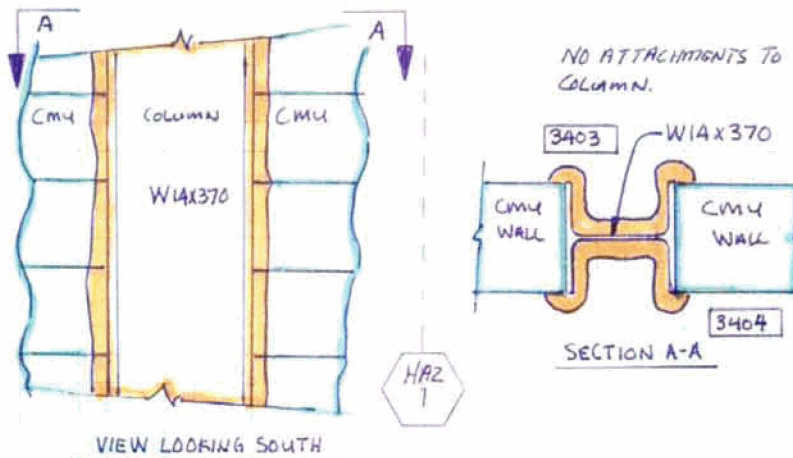 A
A
CMU
COLUMN
CMU
W14X370
VIEW LOOKING SOUTH
HAZ
1
NO ATTACHMENTS TO
COLUMN.
3403
W14X370
CMU
WALL
CMU
WALL
3404
SECTION A-A